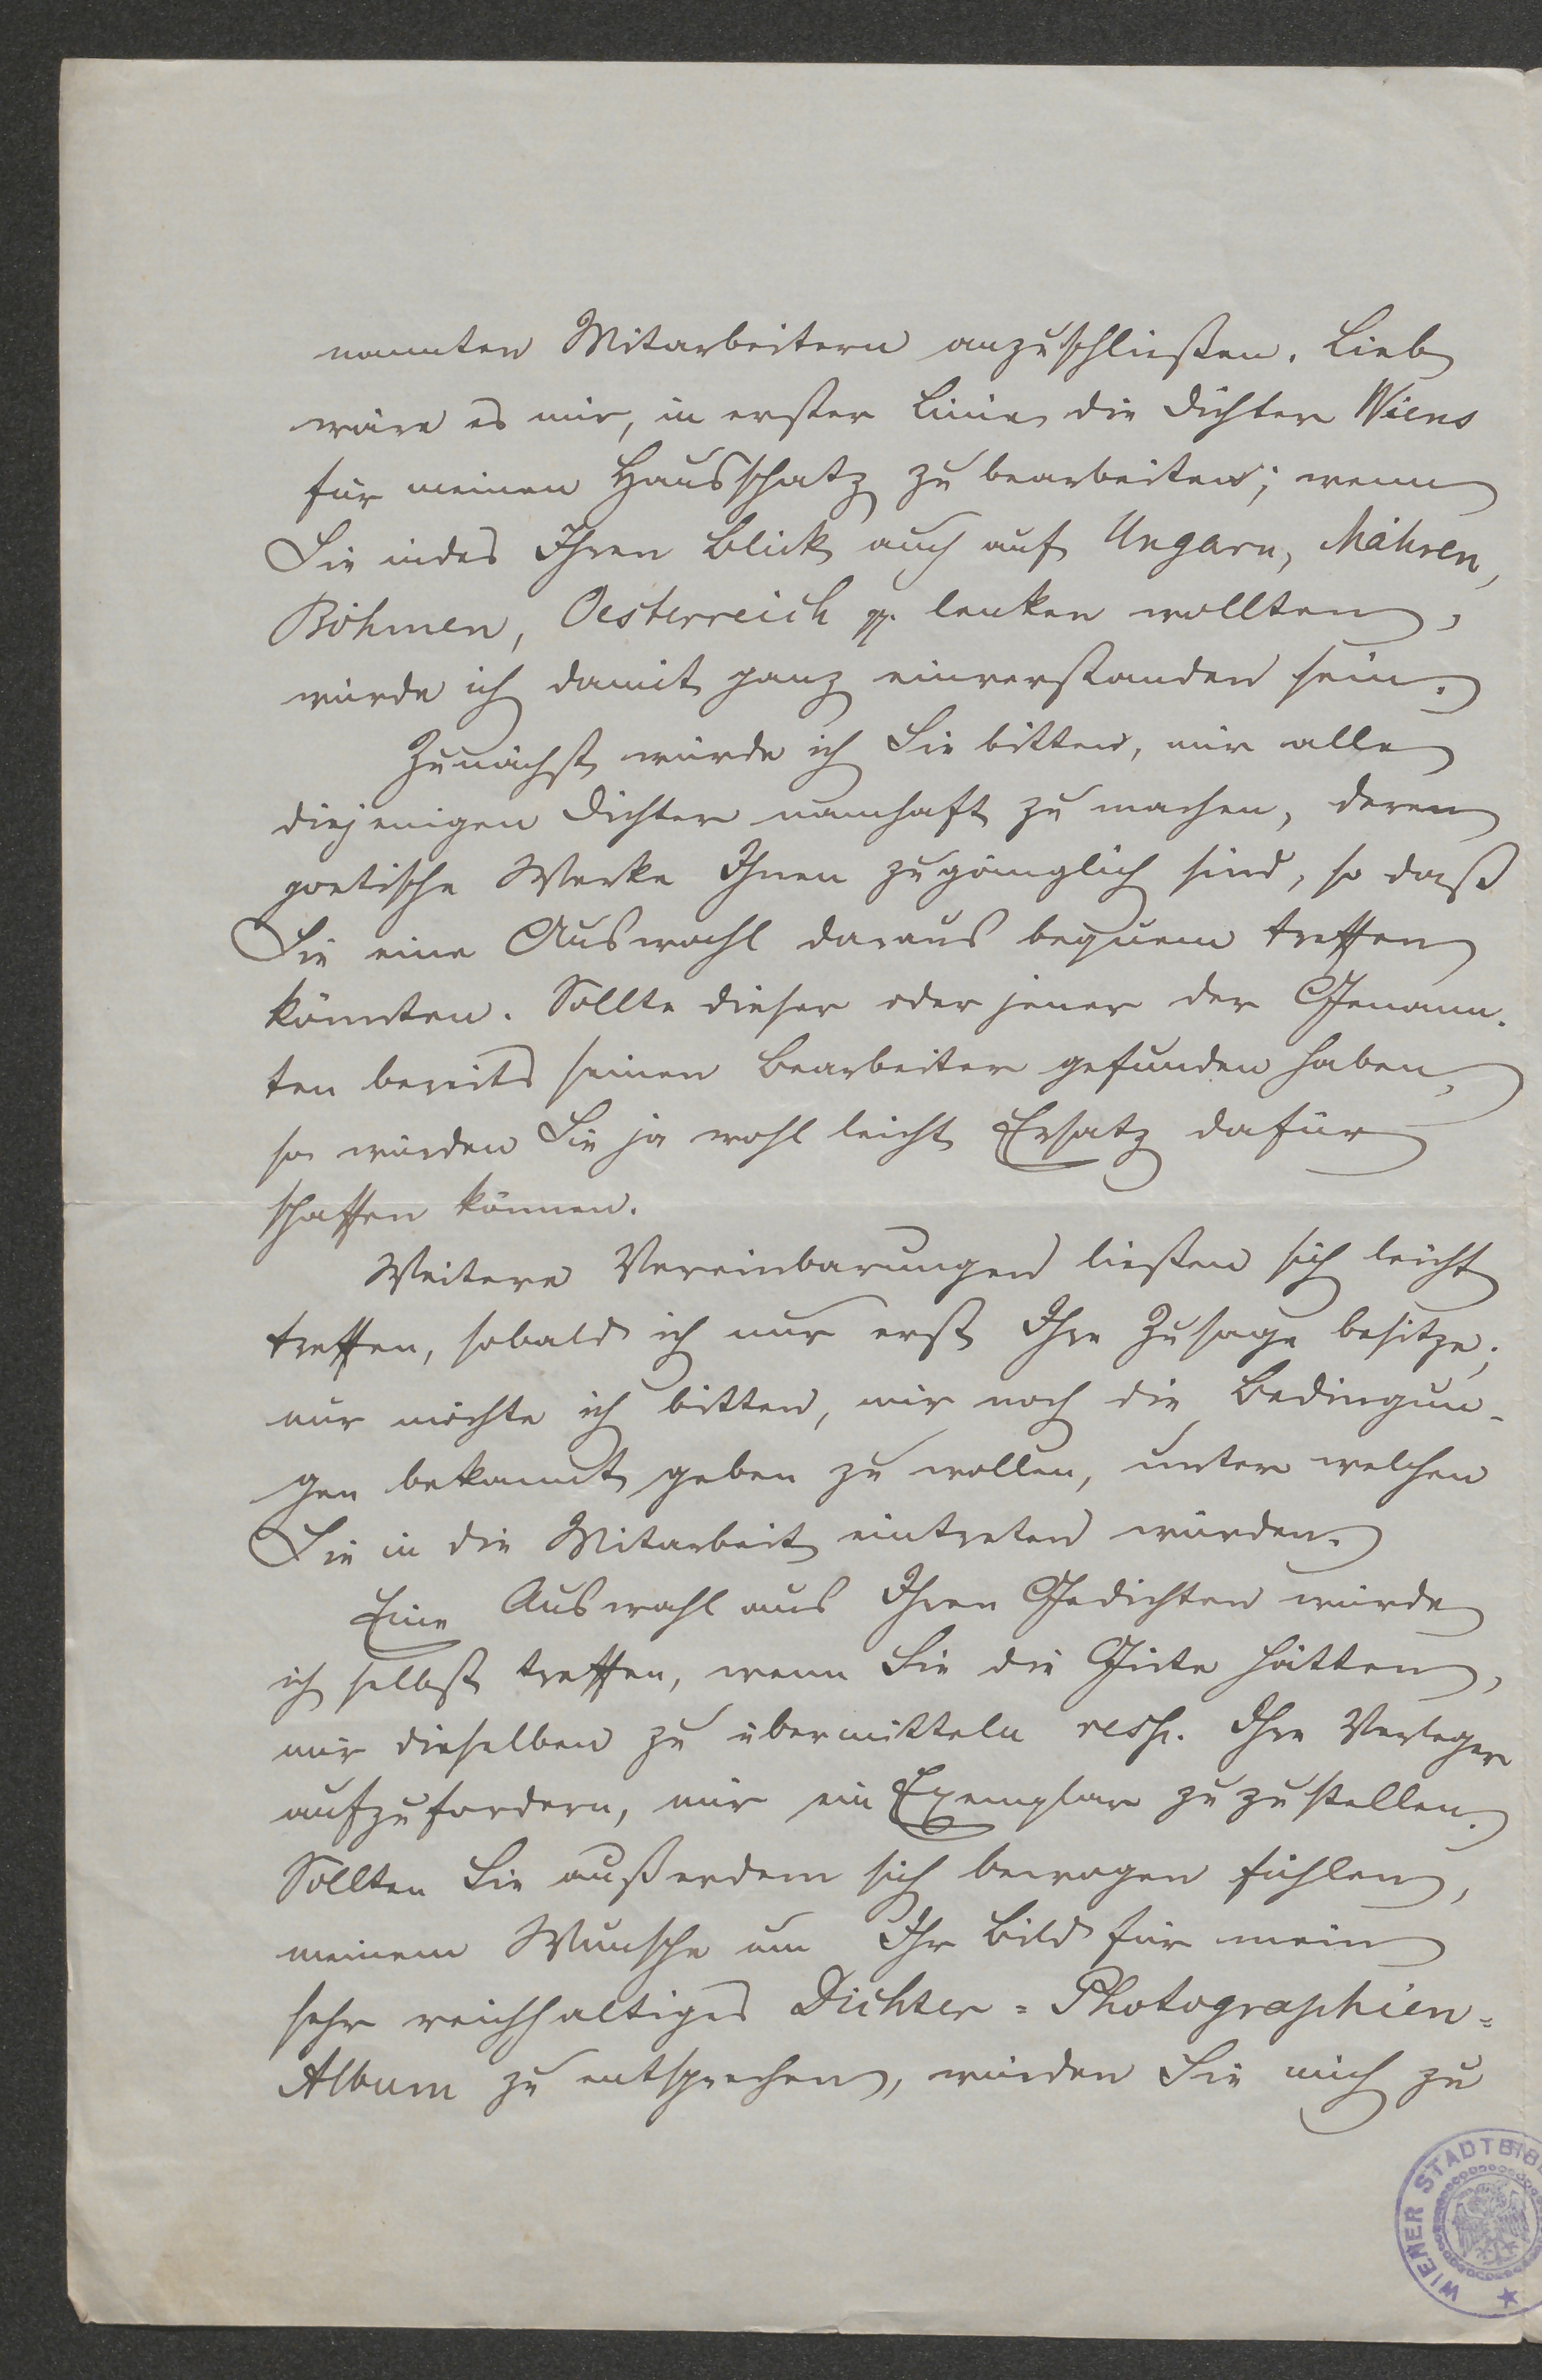 nannten Mitarbeitern anzuschließen. Lieb
wäre es mir, in erster Linie die Dichter Wiens
für meinen Hausschatz zu bearbeiten; wenn
Sie indes Ihren Blick auch auf Ungarn, Mähren,
Böhmen, Oesterreich pp. lenken wollten,
würde ich damit ganz einverstanden sein.
Zunächst würde ich Sie bitten, mir alle
diejenigen Dichter namhaft zu machen, deren
poetische Werke Ihnen zugänglich sind, so daß
Sie eine Auswahl daraus bequem treffen
könnten. Sollte dieser oder jener der Genann-
ten bereits seinen Bearbeiter gefunden haben,
so würden Sie ja wohl leicht Ersatz dafür
schaffen können.
Weitere Vereinbarungen ließen sich leicht
treffen, sobald ich nur erst Ihre Zusage besitze;
nur möchte ich bitten, mir noch die Bedingun-
gen bekannt geben zu wollen, unter welchen
Sie in die Mitarbeit eintreten würden.
Eine Auswahl aus Ihren Gedichten würde
ich selbst treffen, wenn Sie die Güte hätten,
mir dieselben zu übermitteln resp. Ihre Verleger
aufzufordern, mir ein Exemplar zuzustellen.
Sollten Sie außerdem sich bewogen fühlen,
meinem Wunsche um Ihr Bild für mein
sehr reichhaltiges Dichter-Photographien-
Album zu entsprechen, würden Sie mich zu
WIENER STADTBIB